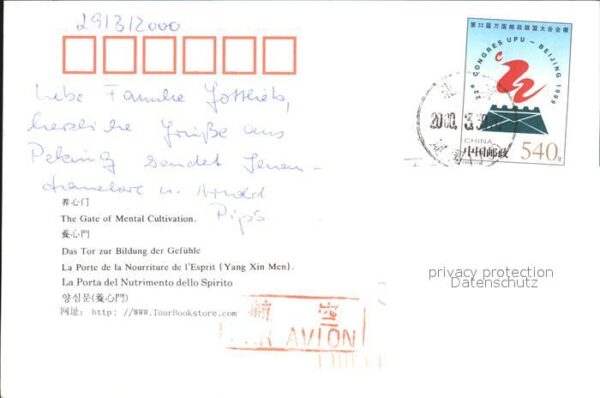 29/3/2000
Liebe Familie Gottlieb,
herzliche Grüße aus
Peking sendet Ihnen
u. Arnold
Pips
养心门
The Gate of Mental Cultivation.
養心門
Das Tor zur Bildung der Gefühle
La Porte de la Nourriture de l'Esprit (Yang Xin Men).
La Porta del Nutrimento dello Spirito
양심문(養心門)
网址: http: //WWW.TourBookstore.com
航 空
PAR AVION
第22届万国邮政联盟大会会徽
22e CONGRES UPU - BEIJING 1999
CHINA
中国邮政
540分
2000.
privacy protection
Datenschutz